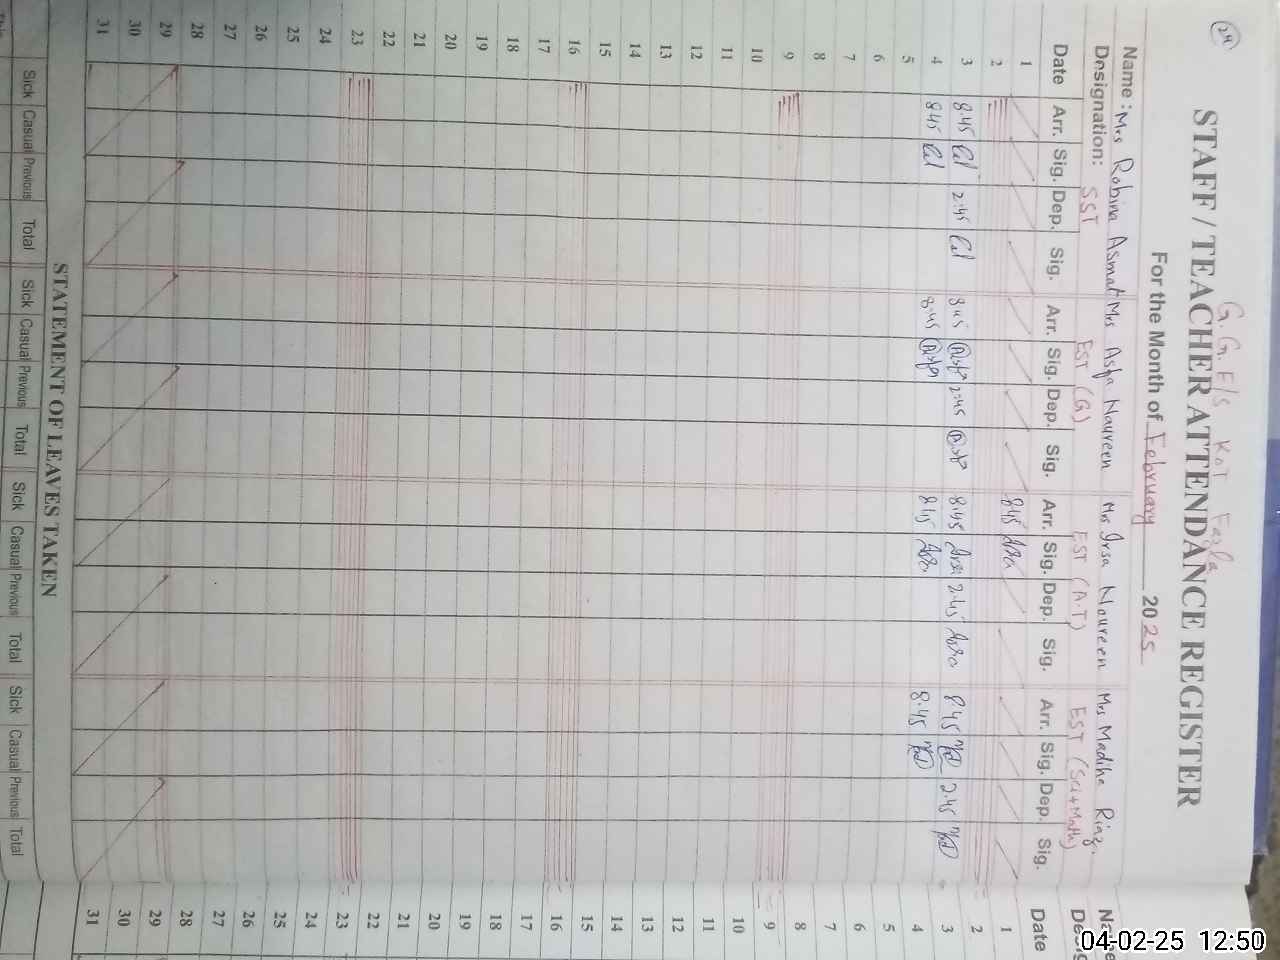 24
G. G. E/S Kot Fazla
STAFF / TEACHER ATTENDANCE REGISTER
For the Month of February 2025
Name : Mrs Robina Asmat Mrs Asfa Naureen Mrs Irsa Noureen Mrs Madiha Riaz.
Designation: SST EST (G) EST (A.T) EST (Sci+Math)
Date Arr. Sig. Dep. Sig. Arr. Sig. Dep. Sig. Arr. Sig. Dep. Sig. Arr. Sig. Dep. Sig. Date
1 8:45 1
2 2
3 8:45 2:45 8:45 2:45 8:45 2:45 8:45 2:45 3
4 8:45 8:45 8:45 8:45 4
5 5
6 6
7 7
8 8
9 9
10 10
11 11
12 12
13 13
14 14
15 15
16 16
17 17
18 18
19 19
20 20
21 21
22 22
23 23
24 24
25 25
26 26
27 27
28 28
29 29
30 30
31 31
STATEMENT OF LEAVES TAKEN
Sick Casual Previous Total Sick Casual Previous Total Sick Casual Previous Total Sick Casual Previous Total
04-02-25 12:50